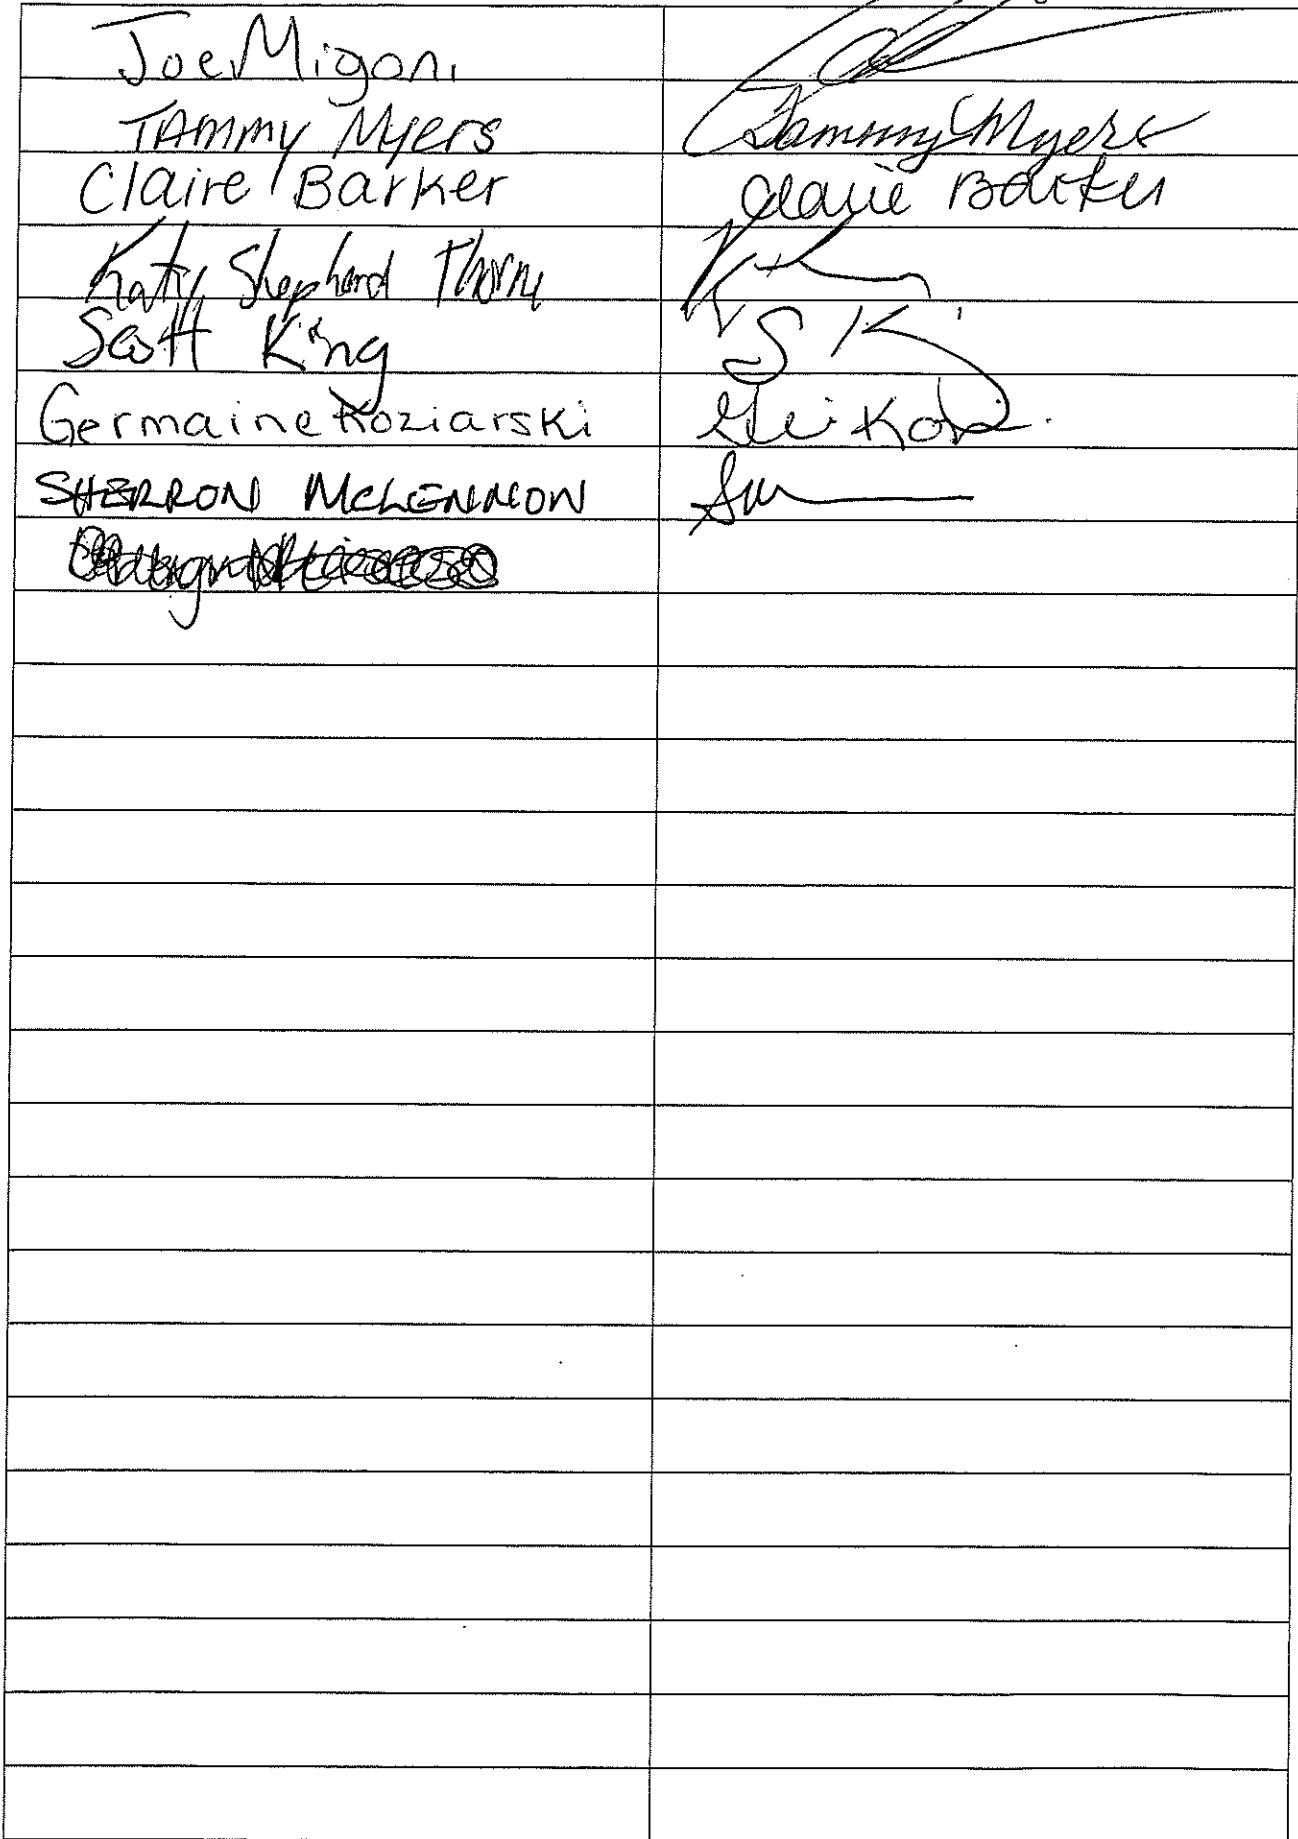 Joe Migoni
TAMMY Myers Tammy Myers
Claire Barker Claire Barker
Katy Shepherd Thorne
Scott King S K
Germaine Koziarski
SHERRON MCLENNON